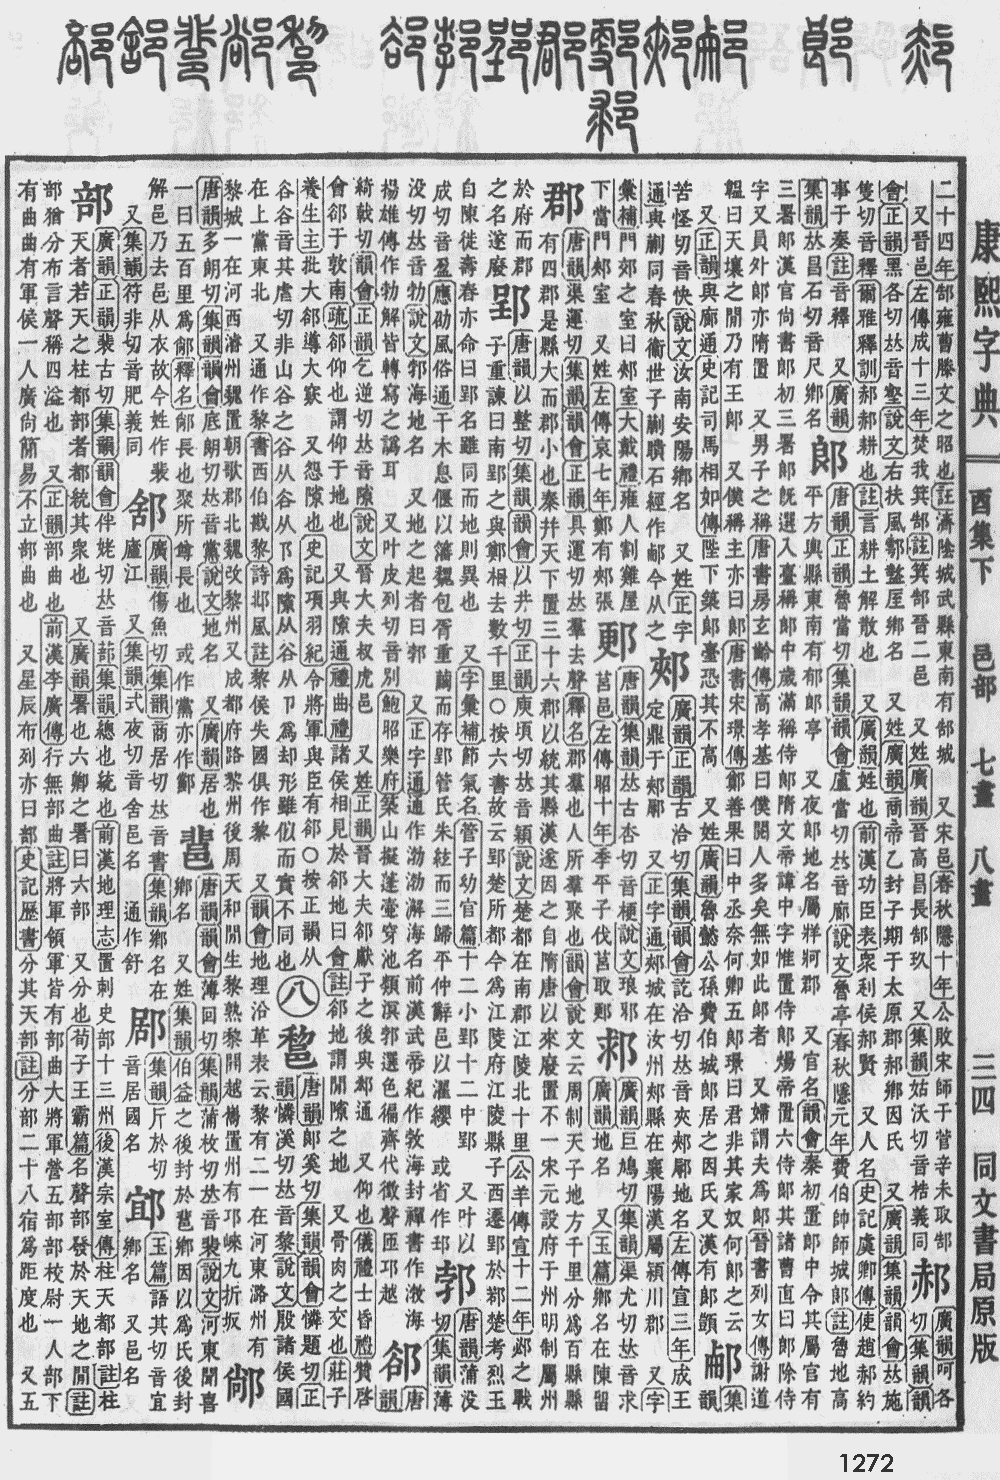 康熙字典 酉集下 邑部 七畫 八畫 三四 同文書局原版
二十四年郜雍曹滕文之昭也註濟陰城武縣東南有郜城 又宋邑春秋隱十年公敗宋師于菅辛未取郜
又晉邑左傳成十三年焚我箕郜註箕郜晉二邑 又姓廣韻晉高昌長郜玖 又集韻姑沃切音梏義同
郝
廣韻呵各
切集韻韻
會正韻黑各切𠀤音壑說文右扶風鄠盩厔鄉名 又姓廣韻商帝乙封子期于太原郡郝鄉因氏 又廣韻集韻韻會𠀤施
隻切音釋爾雅釋訓郝郝耕也註言耕土解散也 又廣韻姓也前漢功臣表衆利侯郝賢 又人名史記虞卿傳使趙郝約
事于秦註音釋 又廣韻
集韻𠀤昌石切音尺鄉名
郞
唐韻正韻魯當切集韻韻會盧當切𠀤音廊說文魯亭春秋隱元年費伯帥師城郞註魯地高
平方輿縣東南有郁郞亭 又夜郞地名屬牂牁郡 又官名韻會秦初置郞中令其屬官有
三署郞漢官尚書郞初三署郞旣選入臺稱郞中歲滿稱侍郞隋文帝諱中字惟置侍郞煬帝置六侍郞其諸曹直曰郞除侍
字又員外郞亦隋置 又男子之稱唐書房玄齡傳高孝基曰僕閱人多矣無如此郞者 又婦謂夫爲郞晉書列女傳謝道
韞曰天壤之閒乃有王郞 又僕稱主亦曰郞唐書宋璟傳鄭善果曰中丞奈何卿五郞璟曰君非其家奴何郞之云
又正韻與廊通史記司馬相如傳陛下築郞臺恐其不高 又姓廣韻魯懿公孫費伯城郞居之因氏又漢有郞顗
集
韻
苦怪切音快說文汝南安陽鄉名 又姓正字
通與蒯同春秋衞世子蒯聵石經作今从之
郟
廣韻正韻古洽切集韻韻會訖洽切𠀤音夾郟鄏地名左傳宣三年成王
定鼎于郟鄏 又正字通郟城在汝州郟縣在襄陽漢屬潁川郡 又字
彙補門郊之室曰郟室大戴禮雍人割雞屋
下當門郟室 又姓左傳哀七年鄭有郟張
郠
唐韻集韻𠀤古杏切音梗說文琅邪
莒邑左傳昭十年季平子伐莒取郠
廣韻巨鳩切集韻渠尤切𠀤音求
廣韻地名 又玉篇鄉名在陳留
郡
唐韻渠運切集韻韻會正韻具運切𠀤羣去聲釋名郡羣也人所羣聚也韻會說文云周制天子地方千里分爲百縣縣
有四郡是縣大而郡小也秦幷天下置三十六郡以統其縣漢遂因之自隋唐以來廢置不一宋元設府于州明制屬州
於府而郡
之名遂廢
郢
唐韻以整切集韻韻會以井切正韻庾頃切𠀤音穎說文楚都在南郡江陵北十里公羊傳宣十二年郔之戰
子重諫曰南郢之與鄭相去數千里○按六書故云郢楚所都今爲江陵府江陵縣子西遷郢於鄀楚考烈王
自陳徙壽春亦命曰郢名雖同而地則異也 又字彙補節氣名管子幼官篇十二小郢十二中郢 又叶以
成切音盈應劭風俗通干木息偃以籓魏包胥重繭而存郢管氏朱紘而三歸平仲辭邑以濯纓 或省作
郣
唐韻蒲没
切集韻薄
没切𠀤音勃說文郣海地名 又地之起者曰郣 又正字通通作渤渤解海名前漢武帝紀作敦海封禪書作浡海
揚雄傳作勃解皆轉寫之譌耳 又叶皮列切音别鮑昭樂府築山擬蓬壷穿池類溟郣選色徧齊代徵聲匝卭越
郤
唐
韻
綺戟切韻會正韻乞逆切𠀤音隙說文晉大夫叔虎邑 又姓正韻晉大夫郤獻子之後與郄通 又仰也儀禮士昏禮贊啓
會郤于敦南疏郤仰也謂仰于地也 又與隙通禮曲禮諸侯相見於郤地曰會註郤地謂閒隙之地 又骨肉之交也莊子
養生主批大郤導大窾 又怨隙也史記項羽紀令將軍與臣有郤○按正韻从
谷谷音其虐切非山谷之谷从谷从卪爲隙从谷从卩爲却形雖似而實不同也
八
唐韻郞奚切集韻韻會憐題切正
韻憐溪切𠀤音黎說文殷諸侯國
在上黨東北 又通作黎書西伯戡黎詩邶風註黎侯失國俱作黎 又韻會地理沿革表云黎有二一在河東潞州有
黎城一在河西濬州魏置朝歌郡北魏改黎州又成都府路黎州後周天和閒生黎熟黎開越巂置州有邛崍九折坂
唐韻多朗切集韻韻會底朗切𠀤音黨說文地名 又廣韻居也
一曰五百里爲釋名長也聚所尊長也 或作黨亦作
唐韻韻會薄回切集韻蒲枚切𠀤音裴說文河東聞喜
鄉名 又姓集韻伯益之後封於鄉因以爲氏後封
解邑乃去邑从衣故今姓作裴
又集韻符非切音肥義同
廣韻傷魚切集韻商居切𠀤音書集韻鄉名在
廬江 又集韻式夜切音舍邑名 通作舒
集韻斤於切
音居國名
玉篇語其切音宜
鄉名 又邑名
部
廣韻正韻裴古切集韻韻會伴姥切𠀤音蔀集韻總也統也前漢地理志置刺史部十三州後漢宗室傳柱天都部註柱
天者若天之柱都部者都統其衆也 又廣韻署也六卿之署曰六部 又分也荀子王霸篇名聲部發於天地之閒註
部猶分布言聲稱四溢也 又正韻部曲也前漢李廣傳行無部曲註將軍領軍皆有部曲大將軍營五部部校尉一人部下
有曲曲有軍侯一人廣尚簡易不立部曲也 又星辰布列亦曰部史記歷書分其天部註分部二十八宿爲距度也 又五
1272